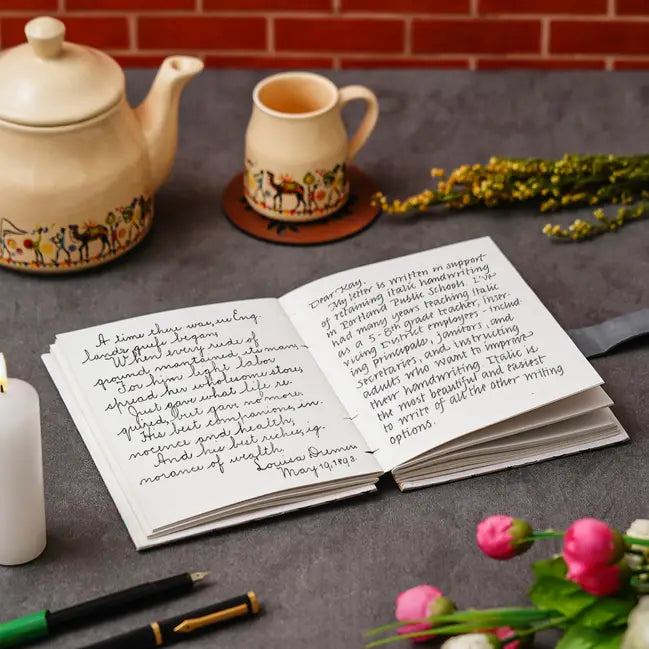 A time there was, ere Eng-
lands griefs began,
When every rode of
ground maintained its man,
For him light labor
spread her wholesome store,
Just gave what life re-
quired, but gave no more.
His best companions, in-
nocence and health,
And his best riches, ig-
norance of wealth.
Louisa
May 19, 1893.
Dear Kay,
My letter is written in support
of retaining italic handwriting
in Portland Public Schools. I've
had many years teaching italic
as a 5-8th grade teacher, inser-
vicing District employees - includ-
ing principals, janitors, and
secretaries, and instructing
adults who want to improve
their handwriting. Italic is
the most beautiful and easiest
to write of all the other writing
options.